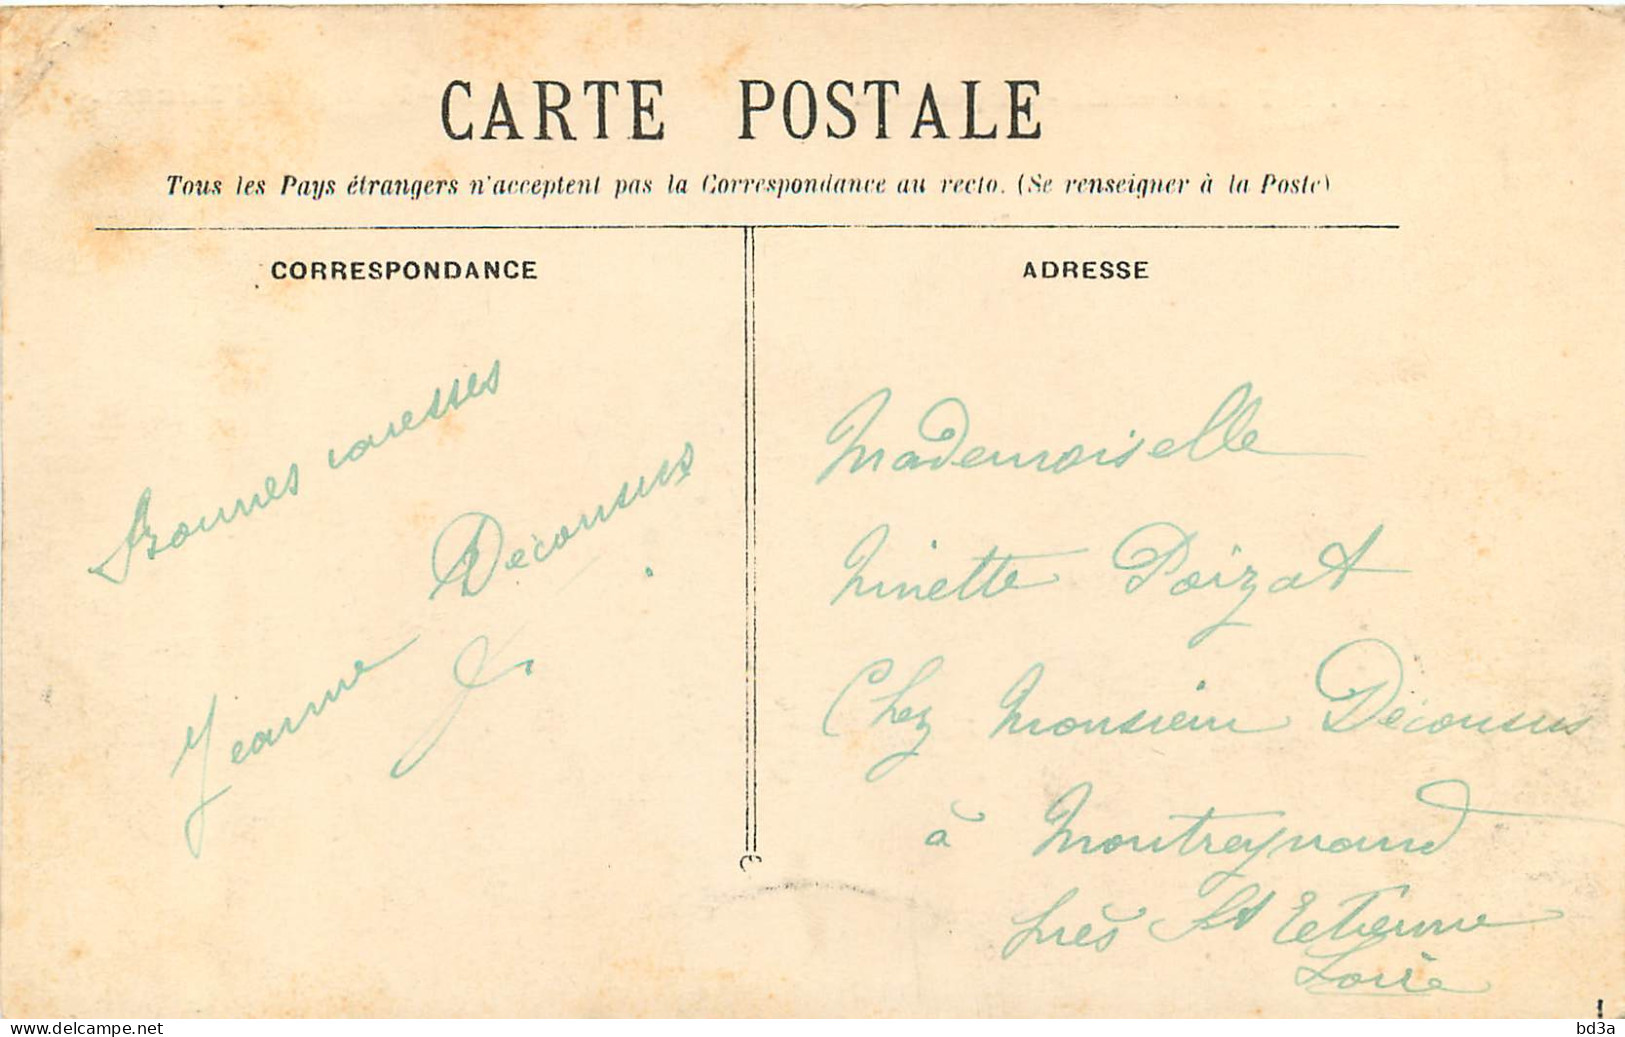 CARTE POSTALE
Tous les Pays étrangers n'acceptent pas la Correspondance au recto. (Se renseigner à la Poste)
CORRESPONDANCE
Bonnes caresses
Jeanne Decousus
ADRESSE
Mademoiselle
Ninette Poizat
Chez Monsieur Decousus
à Montreynaud
près St Etienne
Loire
www.delcampe.net
bd3a